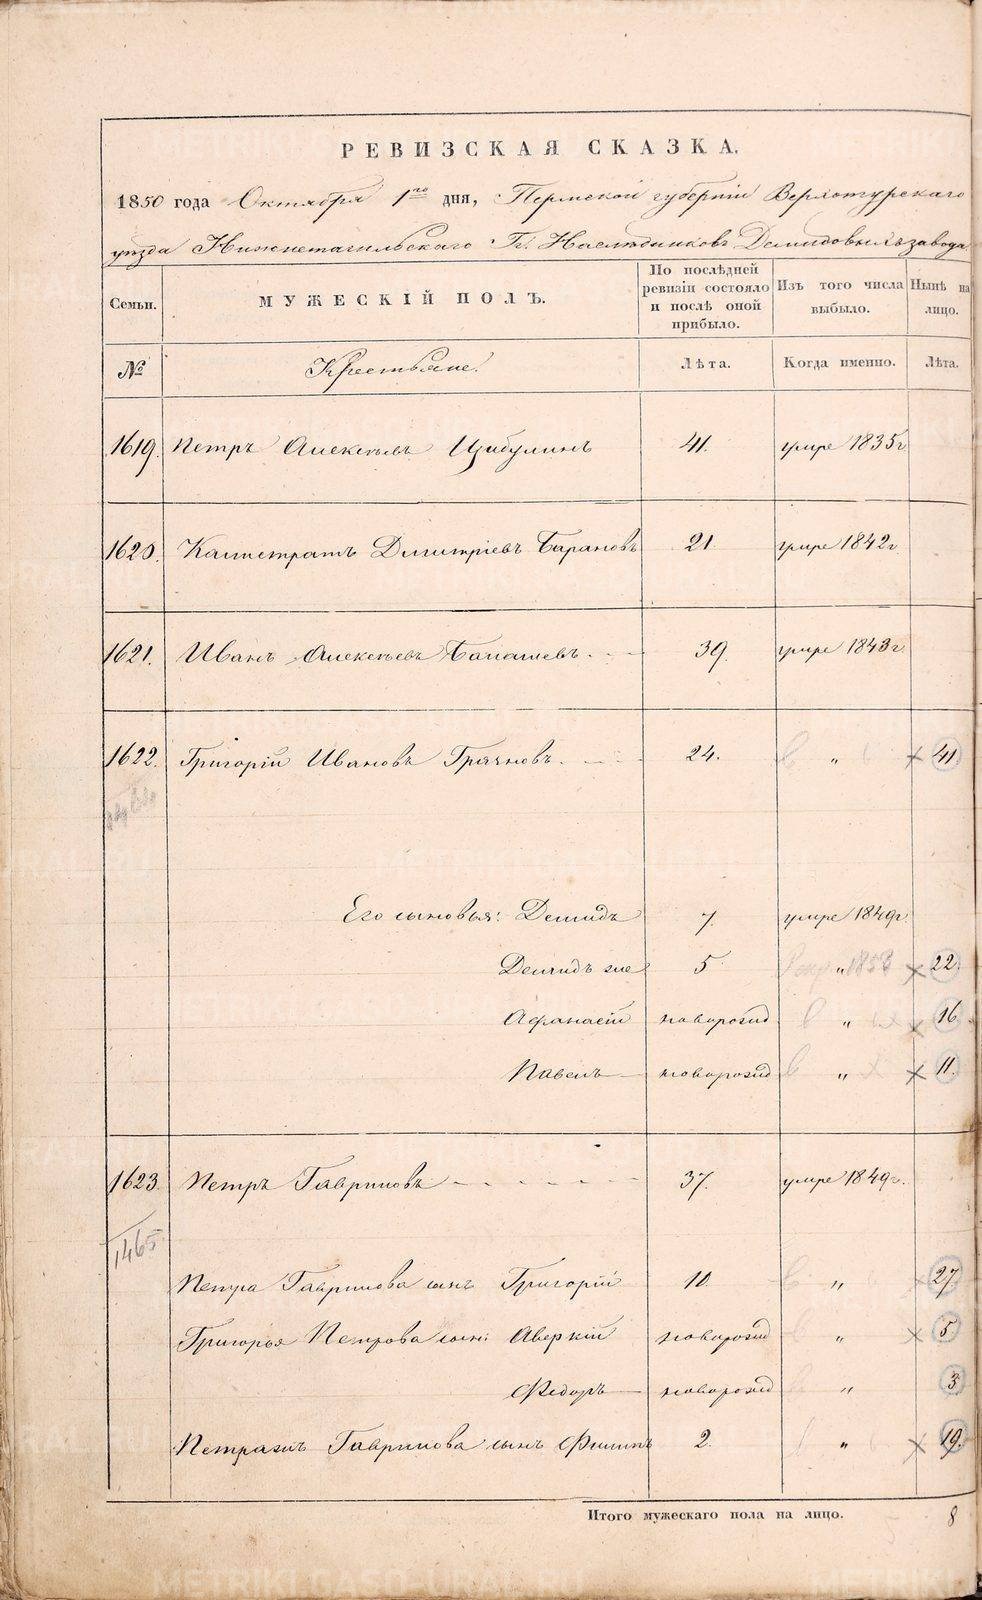 РЕВИЗСКАЯ СКАЗКА.
1850 года Октября 1го дня, Пермской губерніи Верхотурскаго
уезда Нижнетагильскаго Гг. Наследниковъ Демидовыхъ завода
Семьи. МУЖЕСКІЙ ПОЛЪ. По послѣдней ревизіи состояло и послѣ оной прибыло. Изъ того числа выбыло. Нынѣ на лицо.
№ Крестьяне. Лѣта. Когда именно. Лѣта.
1619. Петръ Алексѣевъ Цыбулинъ 41. умре 1835г
1620. Калистратъ Дмитріевъ Барановъ 21. умре 1842г
1621. Иванъ Алексѣевъ Балашевъ. 39. умре 1843г.
1622. Григорій Ивановъ Грачновъ. 24. " × 41
Его сыновья: Демидъ 7. умре 1849г.
Демидъ же 5 " 1853 × 22.
Афанасій новорожд " × 16
Павелъ новорожд " × 11.
1623. Петръ Гавриловъ 37. умре 1849г.
1465
Петра Гаврилова сынъ Григорій 10. " × 27
Григорья Петрова сын: Аверкій новорожд " × 5
Федоръ новорожд " 3
Петра жъ Гаврилова сынъ Филипъ 2. " × 19.
Итого мужескаго пола на лицо. 8
METRIKI.GASO-URAL.RU